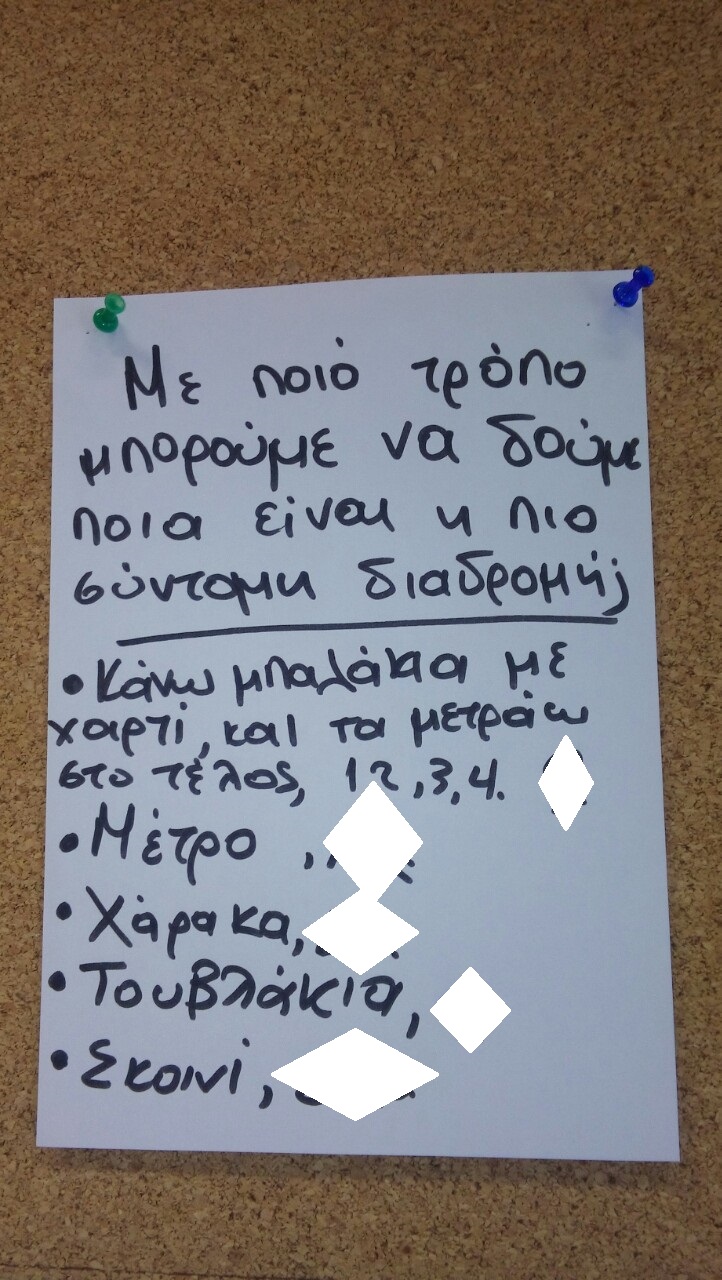 Με ποιό τρόπο
μπορούμε να δούμε
ποια είναι η πιο
σύντομη διαδρομή;
• Κάνω μπαλάκια με
χαρτί, και τα μετράω
στο τέλος, 1 2, 3, 4.
• Μέτρο ,
• Χάρακα,
• Τουβλάκια,
• Σκοινί,